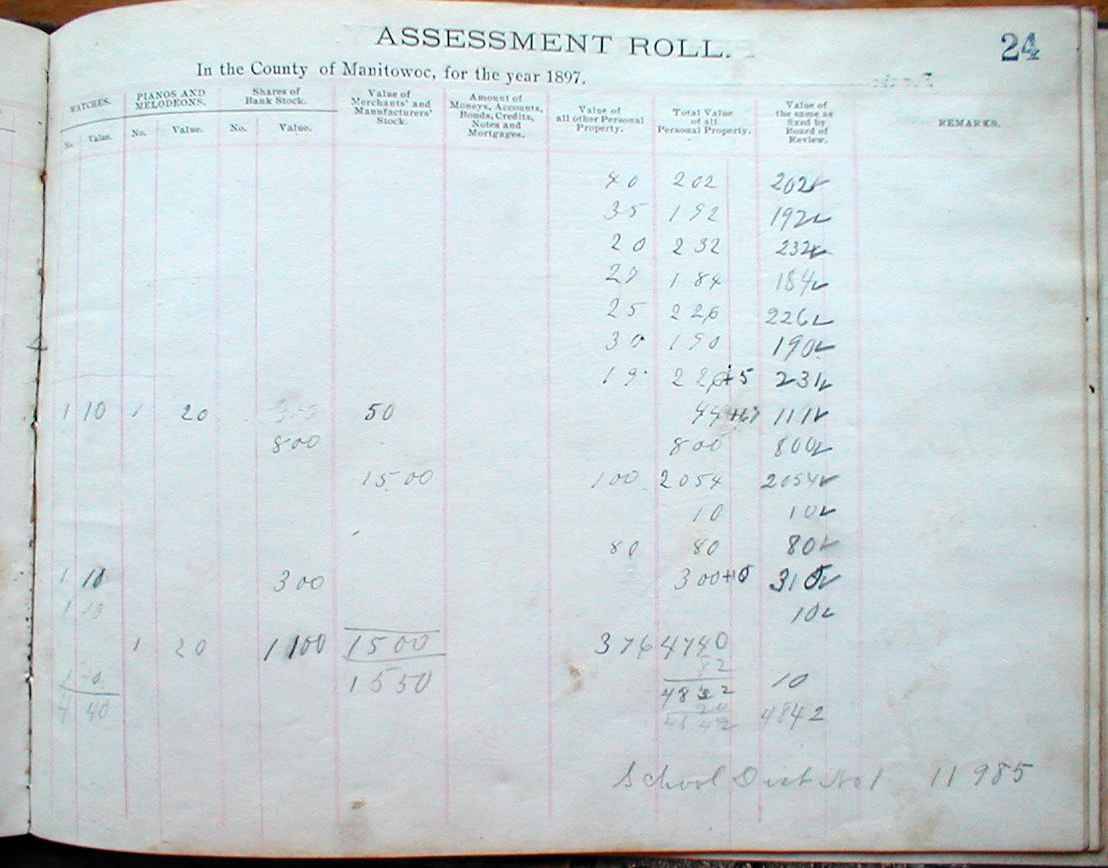 ASSESSMENT ROLL. 24
In the County of Manitowoc, for the year 1897.
WATCHES. PIANOS AND MELODEONS. Shares of Bank Stock. Value of Merchants' and Manufacturers' Stock. Amount of Moneys, Accounts, Bonds, Credits, Notes and Mortgages. Value of all other Personal Property. Total Value of all Personal Property. Value of the same as fixed by Board of Review. REMARKS.
No. Value. No. Value. No. Value.
40 202 202
35 192 192
20 232 232
184 184
25 226 226
30 190 190
19 +5 231
1 10 1 20 50 44 111
800 800 800
1500 100 2054 2054
10 10
80 80 80
1 10 300 300+10 310
1 10 10
1 20 1100 1500 376 4740
82
1550 4822 10
4 40 20
4842 4842
School Dist No 1 11985